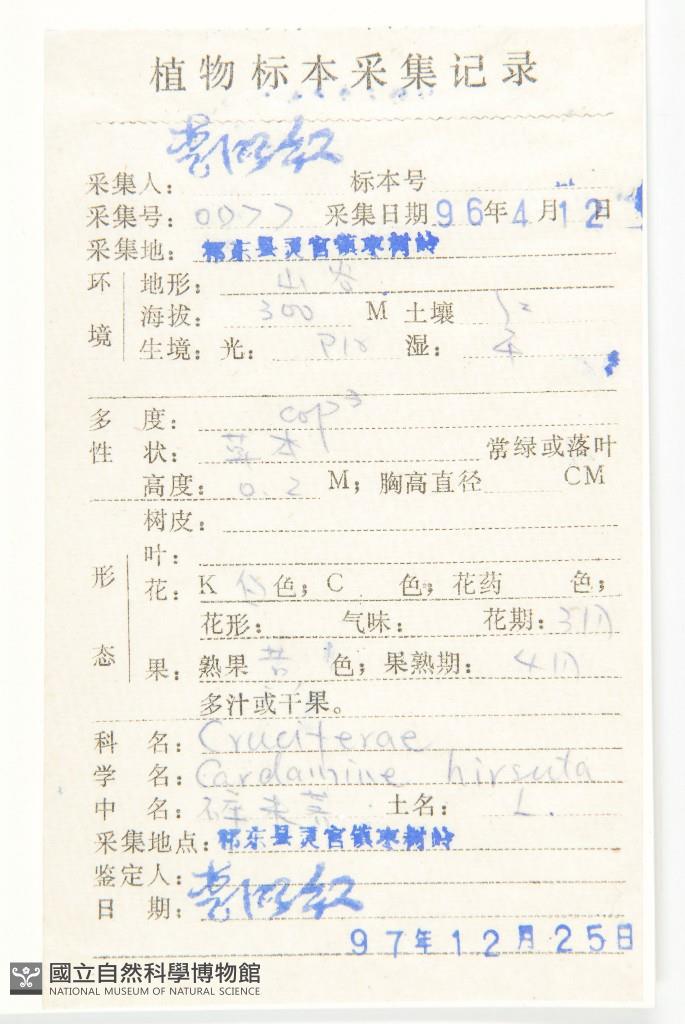 植物标本采集记录
采集人： 标本号
采集号：0077 采集日期96年4月12日
采集地：祁东县灵官镇枣树岭
环境 地形：山谷
海拔：300 M 土壤
生境：光： 湿：
多度：cop3
性状：草本 常绿或落叶
高度：0.2 M；胸高直径 CM
树皮：
形态 叶：
花：K 色；C 色；花药 色；
花形： 气味： 花期：3月
果：熟果 色；果熟期：4月
多汁或干果。
科名：Cruciferae
学名：Cardamine hirsuta
中名：碎米荠 土名： L.
采集地点：祁东县灵官镇枣树岭
鉴定人：
日期：
97年12月25日
國立自然科學博物館
NATIONAL MUSEUM OF NATURAL SCIENCE